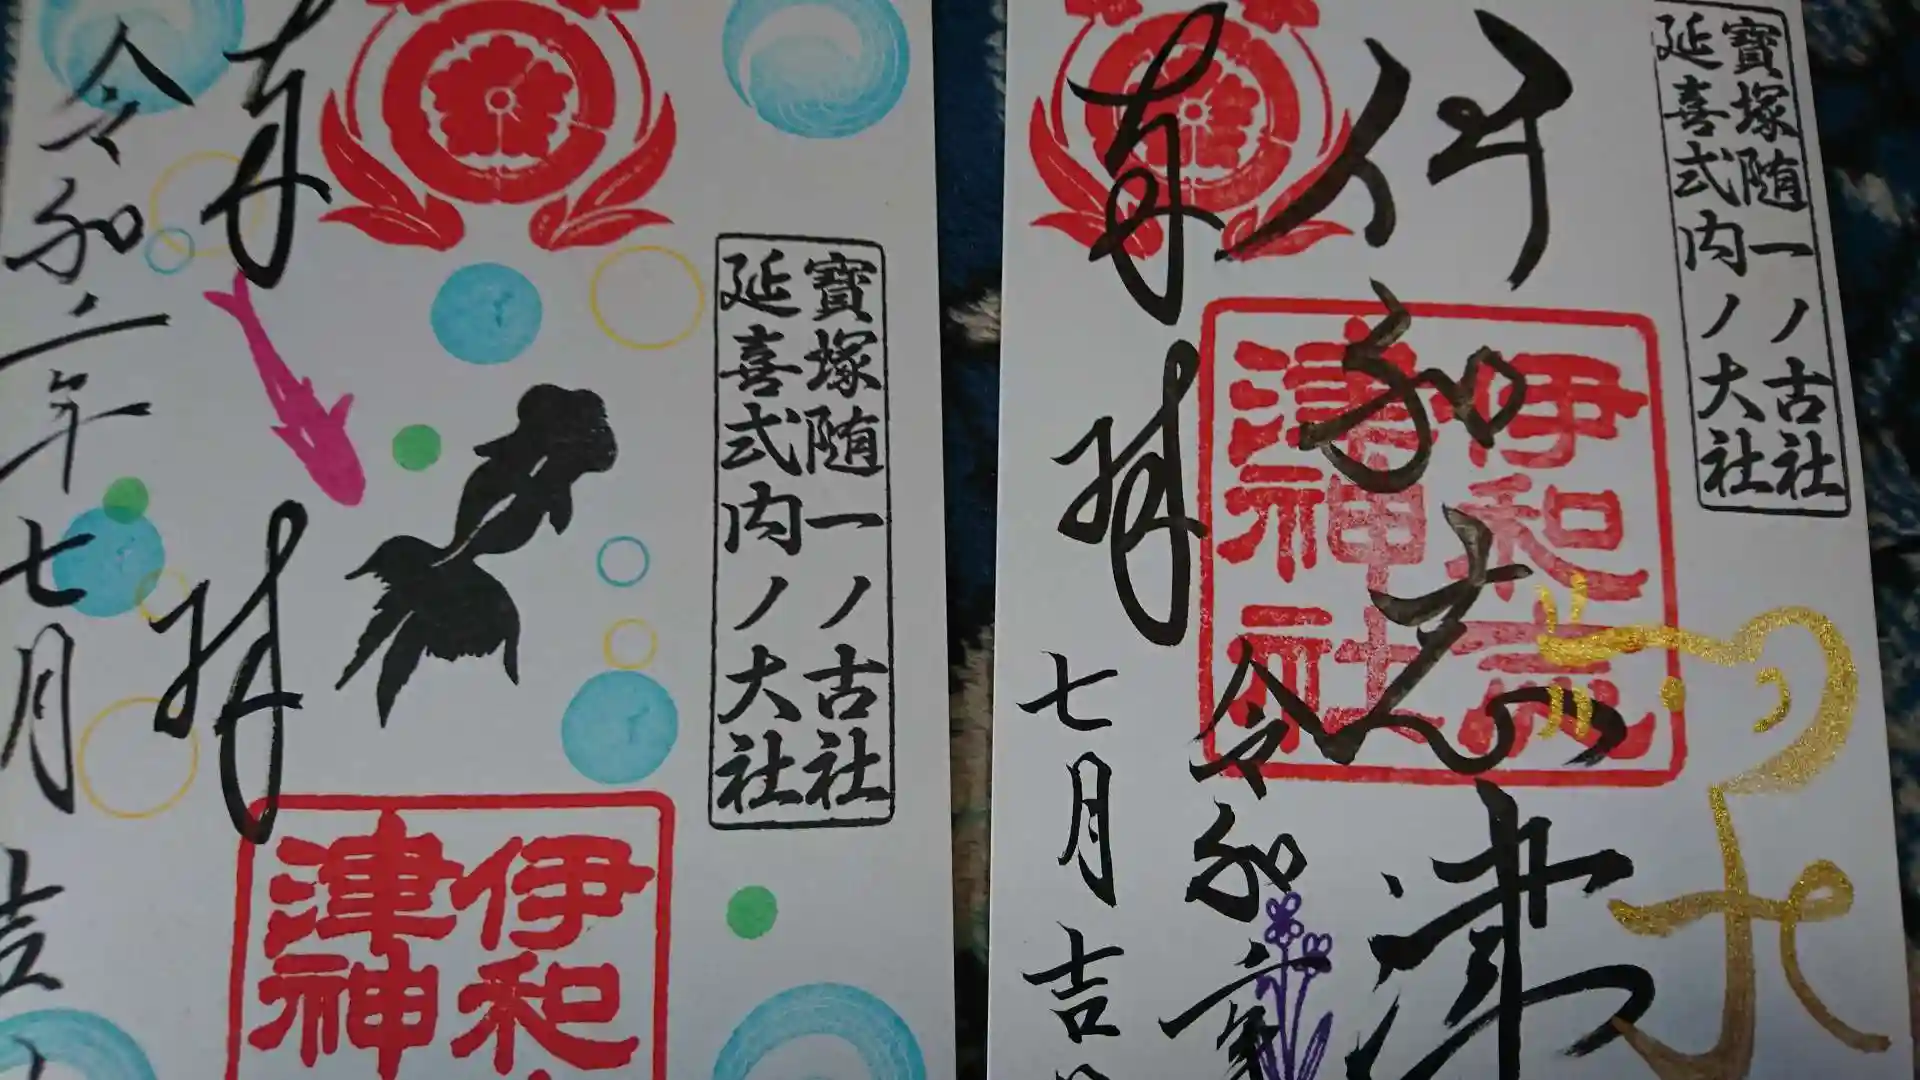 奉
拝
令和二年
七月吉
寶塚随一ノ古社
延喜式内ノ大社
伊和
津神
寶塚随一ノ古社
延喜式内ノ大社
伊和志津
奉
拝
伊和志
津神社
令和二年
七月吉日